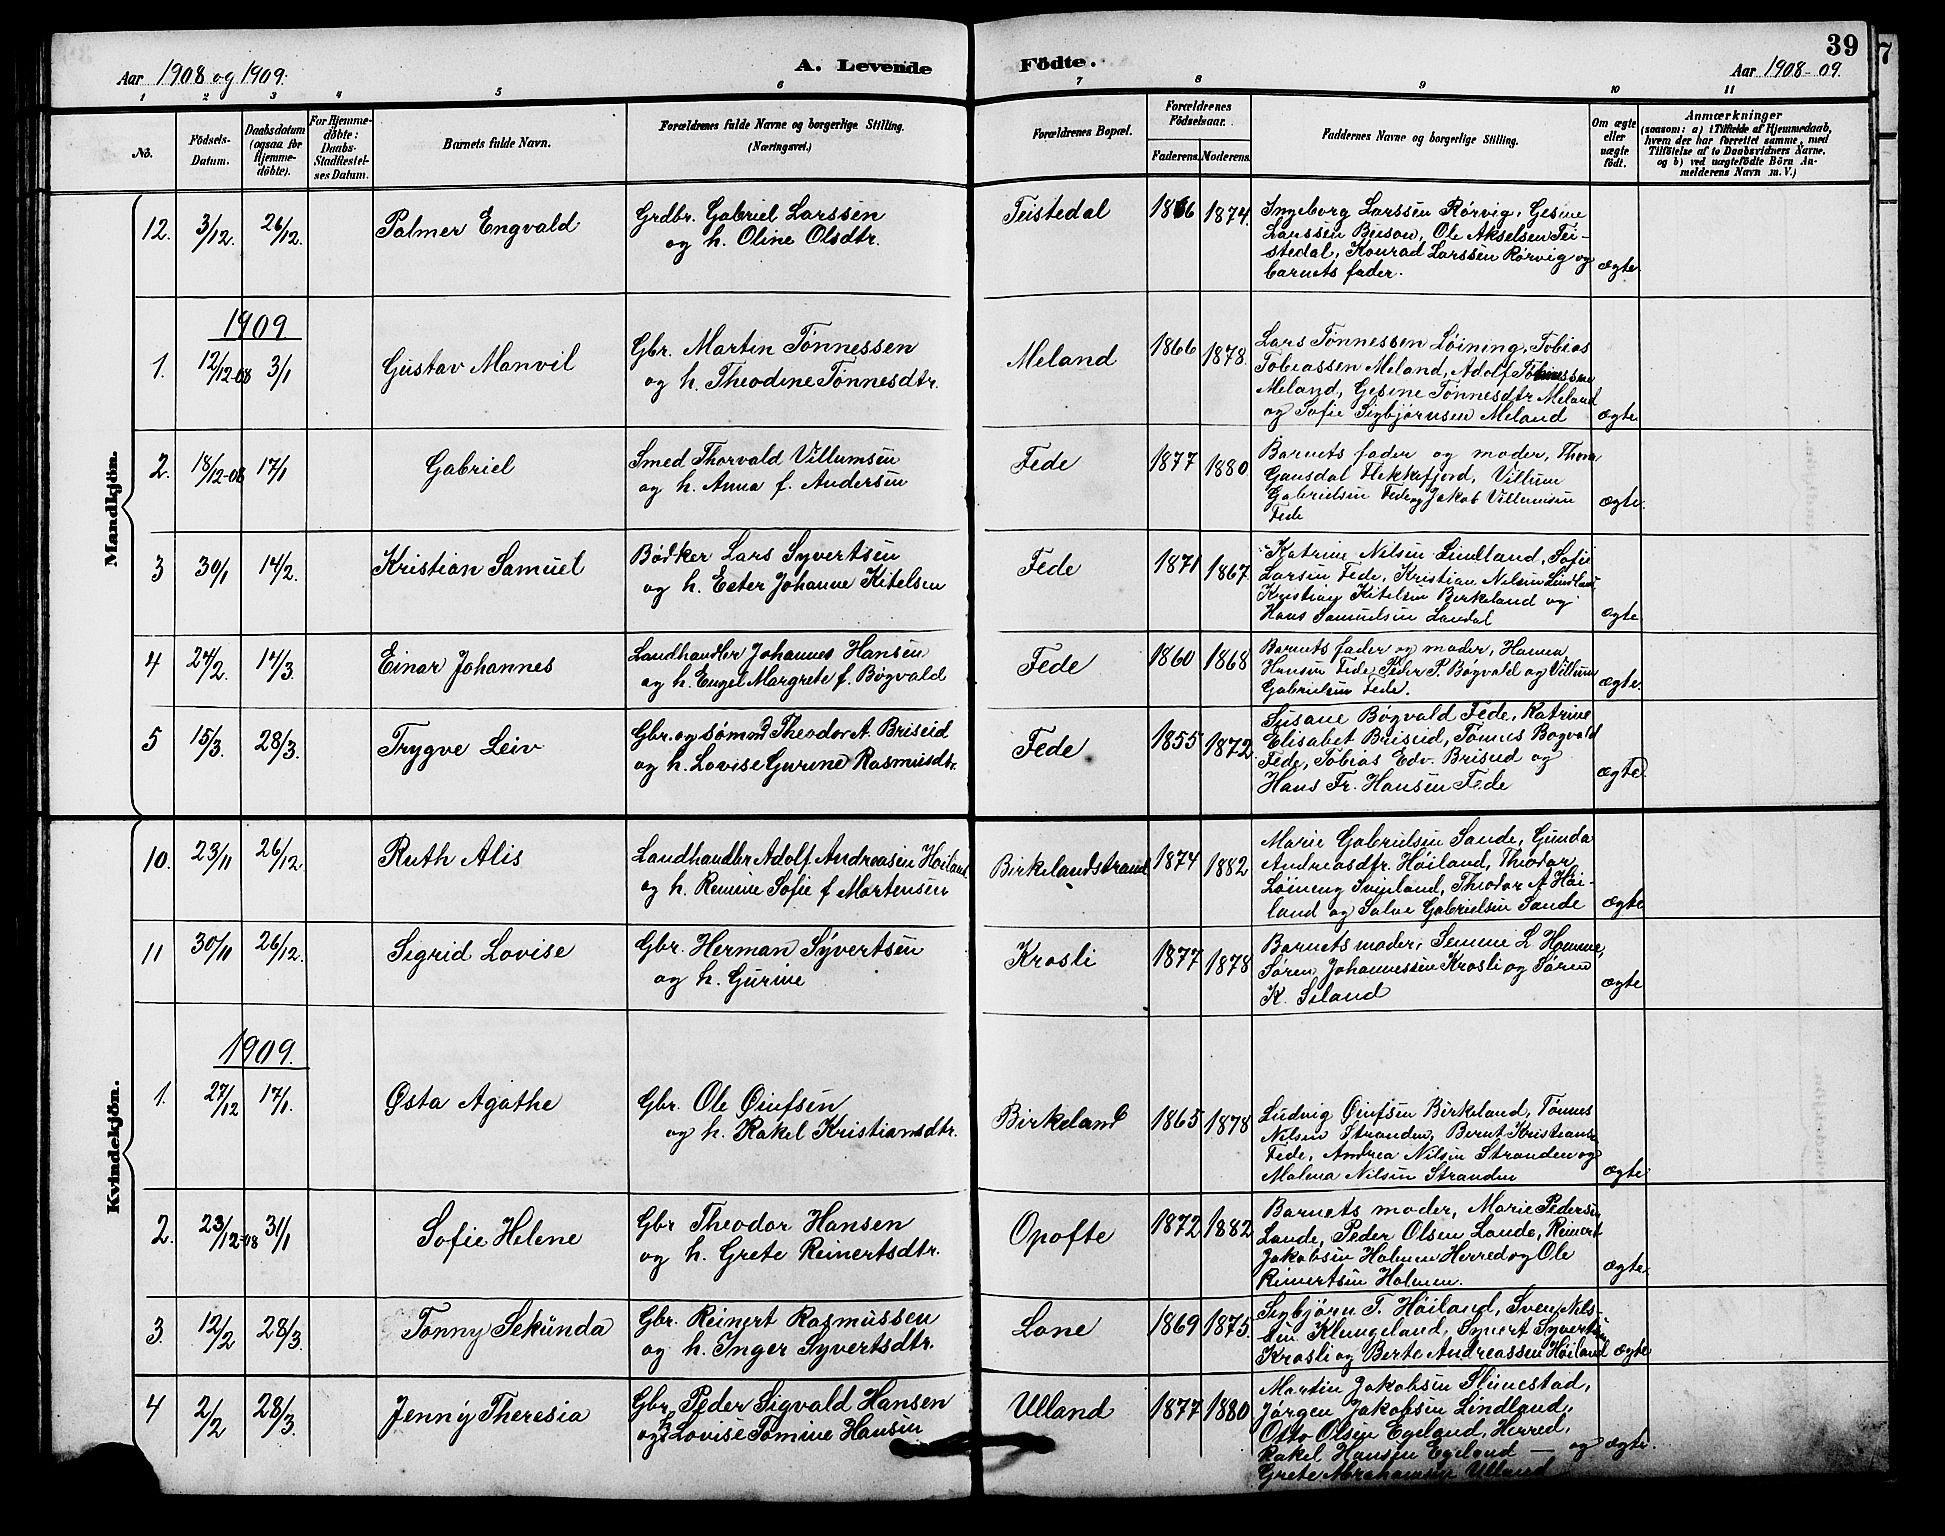 39
7
Aar 1908 og 1909. A. Levende Födte. Aar 1908-09.
1 2 3 4 5 6 7 8 9 10 11
No.
Födsels-
Datum.
Daabsdatum
(ogsaa for
Hjemme-
döbte).
For Hjemme-
döbte:
Daabs-
Stadfæstel-
ses Datum.
Barnets fulde Navn.
Forældrenes fulde Navne og borgerlige Stilling.
(Næringsvei.)
Forældrenes Bopæl.
Forældrenes
Födselsaar.
Faderens. Moderens.
Faddernes Navne og borgerlige Stilling.
Om ægte
eller
uægte
födt.
Anmærkninger
(saasom: a) i Tilfælde af Hjemmedaab,
hvem der har forrettet samme, med
Tilföielse af to Daabsvidners Navne,
og b) ved uægtefödte Börn An-
melderens Navn m. V.)
Mandkjön.
12. 3/12. 26/12. Palmer Engvald
Grdbr. Gabriel Larssen
og h. Oline Olsdtr.
Teistedal 1866 1874.
Ingeborg Larssen Rørvig, Gesine
Larssen Buson, Ole Akselsen Tei-
stedal, Konrad Larssen Rørvig og
barnets fader.
ægte.
1909
1. 12/12-08 3/1 Gustav Manvil
Gbr. Martin Tønnessen
og h. Theodine Tønnesdtr.
Meland 1866 1878.
Lars Tønnessen Løining, Tobias
Tobiassen Meland, Adolf Tønnessen
Meland, Gesine Tønnesdtr Meland
og Sofie Sigbjørnsen Meland
ægte
2. 18/12-08 17/1 Gabriel
Smed Thorvald Villumsen
og h. Anna f. Andersen
Fede 1877 1880
Barnets fader og moder, Thora
Gausdal Flekkefjord, Villum
Gabrielsen Fede og Jakob Villumsen
Fede
ægte.
3 30/1 14/2. Kristian Samuel
Bødker Lars Syvertsen
og h. Ester Johanne Kitelsen
Fede 1871 1867.
Katrine Nilsen Lindland, Sofie
Larsen Fede, Kristian Nilsen Lindland
Kristian Kitelsen Birkeland og
Hans Samuelsen Landal
ægte
4 24/2. 14/3. Einar Johannes
Landhandler Johannes Hansen
og h. Engel Margrete f. Bøgvald
Fede 1860 1868
Barnets fader og moder, Hanna
Hansen Fede, Peder P. Bøgvald og Villum
Gabrielsen Fede.
ægte.
5 15/3. 28/3. Trygve Leiv
Gbr. og sømnd Theodor A. Briseid
og h. Lovise Gurine Rasmusdtr.
Fede 1855 1872
Susane Bøgvald Fede, Katrine
Elisabet Briseid, Tønnes Bøgvald
Fede, Tobias Edv. Briseid og
Hans Fr. Hansen Fede
ægte
Kvindekjön.
10. 23/11 26/12. Ruth Alis
Landhandler Adolf Andreasen Høiland
og h. Remine Sofie f Martensen
Birkelandstrand 1874 1882
Marie Gabrielsen Sande, Gunda
Andreasdtr. Høiland, Theodor
Løining Svinland, Theodor A Høi-
land og Salve Gabrielsen Sande
ægte
11 30/11 26/12. Sigrid Lovise
Gbr. Herman Syvertsen
og h. Gurine
Krosli 1877 1878
Barnets moder, Semine L Homme,
Søren Johannessen Krosli og Søren
K. Seland
ægte
1909.
1. 27/12 17/1. Østa Agathe
Gbr. Ole Øiufsen
og h. Rakel Kristiansdtr.
Birkeland 1865 1878
Ludvig Øiufsen Birkeland, Tønnes
Nilsen Stranden, Bernt Kristiansen
Fede, Andrea Nilsen Stranden og
Malena Nilsen Stranden
ægte
2. 23/12-08 31/1 Sofie Helene
Gbr Theodor Hansen
og h. Grete Reinertsdtr.
Opofte 1872 1882
Barnets moder, Marie Pedersen
Lande, Peder Olsen Lande, Reinert
Jakobsen Holmen Herred og Ole
Reinertsen Holmen.
ægte.
3. 12/2 28/3. Tonny Sekunda
Gbr. Reinert Rasmussen
og h. Inger Syvertsdtr.
Lone 1869 1875.
Sigbjørn T. Høiland, Sven Nils-
sen Klungeland, Syvert Syvertsen
Krosli og Berte Andreassen Høiland
ægte
4 2/2 28/3. Jenny Theresia
Gbr. Peder Sigvald Hansen
og h Lovise Tomine Hansen
Ulland 1877 1880
Martin Jakobsen Slimestad,
Jørgen Jakobsen Lindland,
Otto Olsen Egeland, Herred,
Rakel Hansen Egeland — og
Grete Abrahamsen Ulland
ægte.